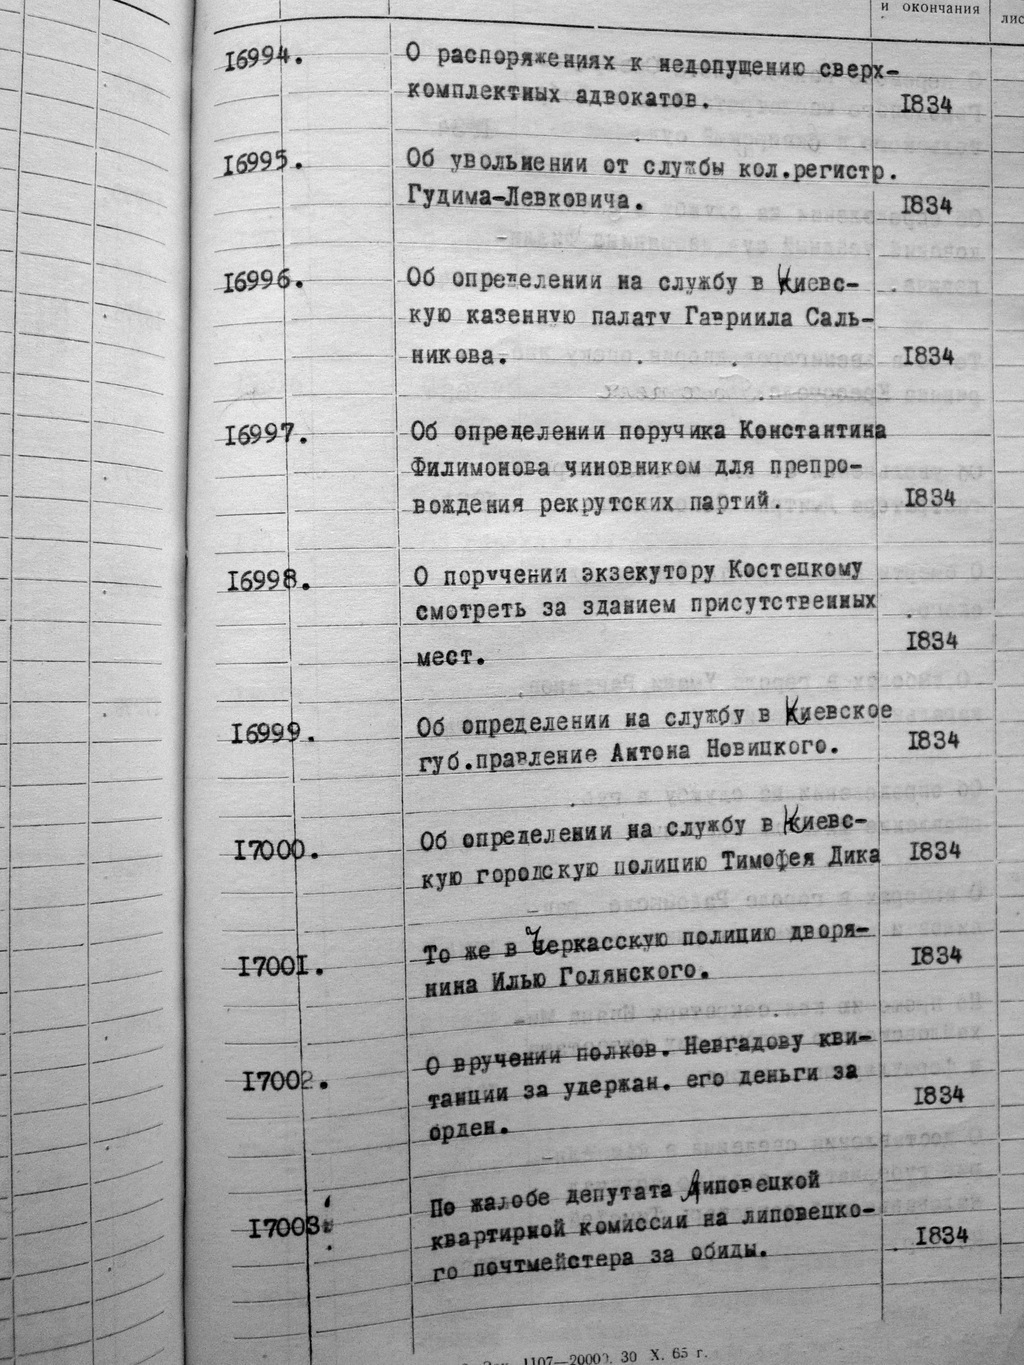 и окончания
лис
16994.
О распоряжениях к недопущению сверх-
комплектных адвокатов.
1834
16995.
Об увольнении от службы кол.регистр.
Гудима-Левковича.
1834
16996.
Об определении на службу в Киевс-
кую казенную палату Гавриила Саль-
никова.
1834
16997.
Об определении поручика Константина
Филимонова чиновником для препро-
вождения рекрутских партий.
1834
16998.
О поручении экзекутору Костецкому
смотреть за зданием присутственных
мест.
1834
16999.
Об определении на службу в Киевское
губ.правление Антона Новицкого.
1834
17000.
Об определении на службу в Киевс-
кую городскую полицию Тимофея Дика
1834
17001.
То же в Черкасскую полицию дворя-
нина Илью Голянского.
1834
17002.
О вручении полков. Невгадову кви-
танции за удержан. его деньги за
орден.
1834
17003.
По жалобе депутата Липовецкой
квартирной комиссии на липовецко-
го почтмейстера за обиды.
1834
1107—20000. 30 X. 65 г.